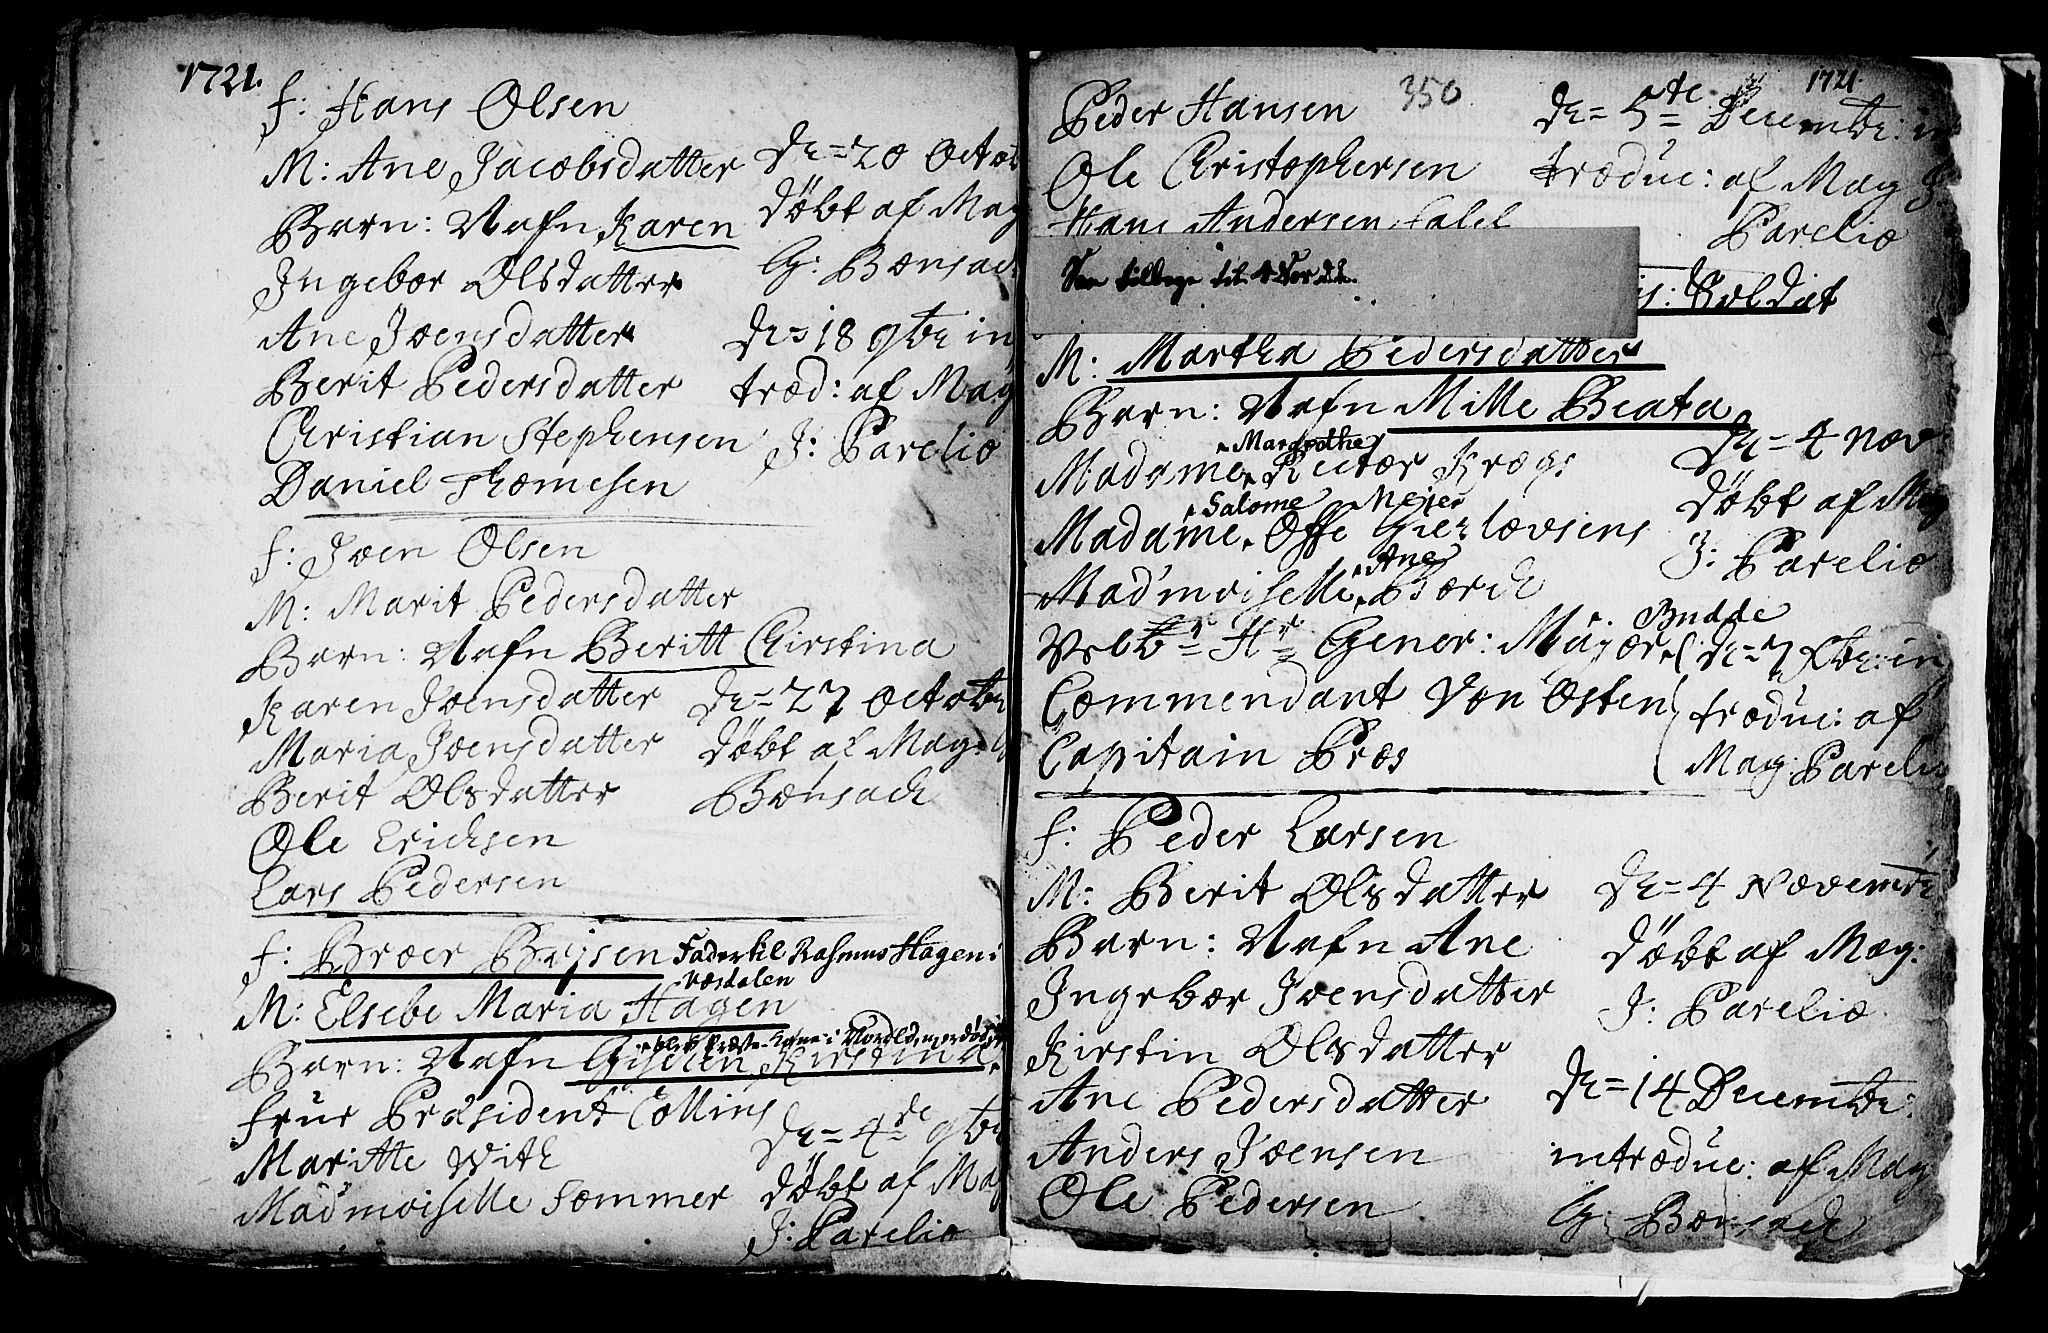 1721.
f: Hans Olsen
M: Ane Jacobsdatter
Barn: Nafn Karen
Ingebor Olsdatter
Ane Joensdatter
Berit Pedersdatter
Christian Stephensen
Daniel Thomesen
D. 20 Octob
döbt af Mag
G: Bonsach
D. 18 9br in
trod: af Mag
J: Parelio
f: Joen Olsen
M: Marit Pedersdatter
Barn: Nafn Beritt Chirstina
Karen Joensdatter
Maria Joensdatter
Berit Olsdatter
Ole Erichsen
Lars Pedersen
D. 27 Octobr
döbt af Mag: G
Bonsach
f: Broer Brijsen Fader til Rasmus Hagen i
Væsdalen
M: Elsebe Maria Hagen
Barn: Nafn Gischen Kirstina
frue Præsident Collins
Maritte With
Mad'moiselle Sommer
D. 4de 9br
döbt af Mag
J: Parelio
1721.
350
Peder Hansen
Ole Christophersen
Hans Andersen
D. 5te Decembr: in
troduc: af Mag J.
Parelio
Soldat
M: Martha Pedersdatter
Barn: Nafn Mille Beata
Margrethe
Madame Rector Krogs
Salome Meijer
Madame Offe Gierlovsens
Ane
Mad'moiselle Borch
Budde
Velb. Hr Gener: Major
Commendant Von Osten
Capitain Pros
D. 4 Nov
döbt af Mag
J: Parelio
D. 7 Xbr: in
troduc: af
Mag: Parelio
f: Peder Larsen
M: Berit Olsdatter
Barn: Nafn Ane
Ingebor Joensdatter
Kirstin Olsdatter
Ane Pedersdatter
Anders Joensen
Ole Pedersen
D. 4 Novembr
döbt af Mag:
J: Parelio
D. 14 Decembr:
introduc: af Mag
G: Bonsach